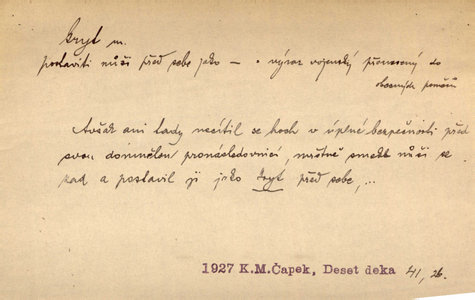 kryt m.
postaviti nůši před sebe jako — · výraz vojenský přenesený do
obecných poměrů
Avšak ani tady necítil se hoch v úplné bezpečnosti před
svou domnělou pronásledovnicí, mrštně smekl nůši se
zad a postavil ji jako kryt před sebe, ...
1927 K.M.Čapek, Deset deka 41, 26.